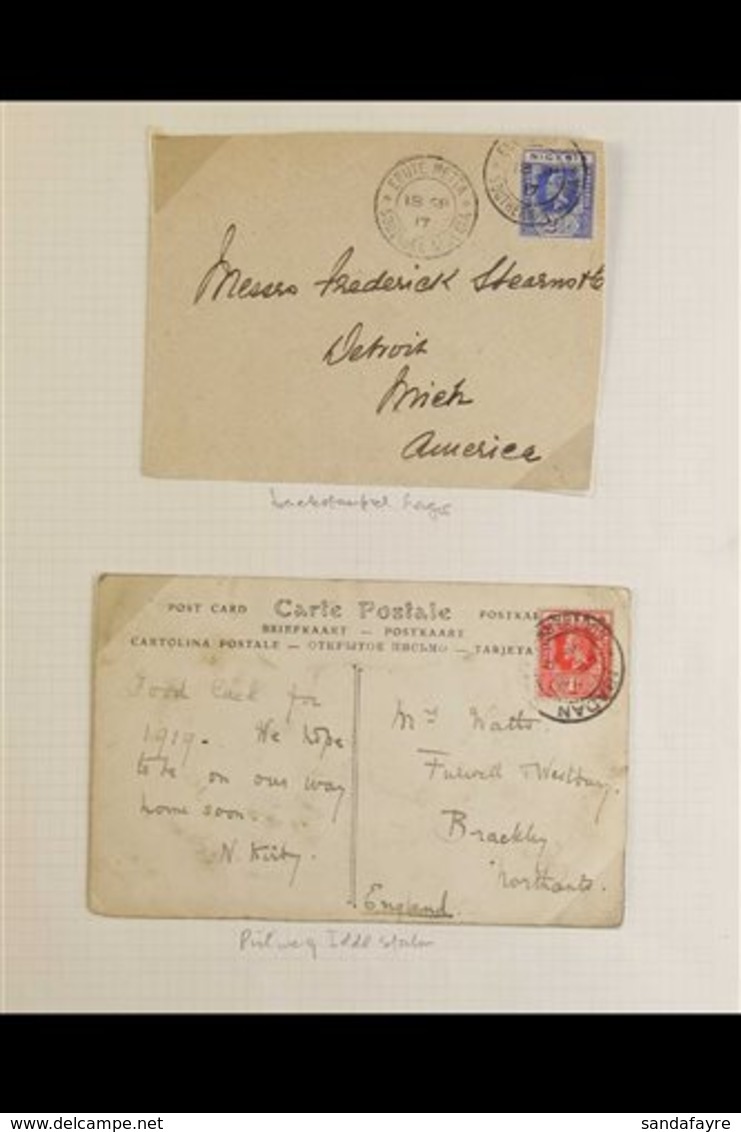 EBUTE METTA
18 SP
17
SOUTHERN NIGERIA
NIGERIA
SOUTHERN
Messrs Frederick Stearns & Co
Detroit
Mich
America
Backstamped Lagos
POST CARD Carte Postale POSTKAR
BRIEFKAART — POSTKAART
CARTOLINA POSTALE — ОТКРЫТОЕ ПИСЬМО — TARJETA
IBADAN
Good luck for
1919. We hope
to be on our way
home soon.
N. Kirby.
Mrs Watts.
Fulwell Westbury.
Brackley
Northants.
England.
Iddo station
sandafayre